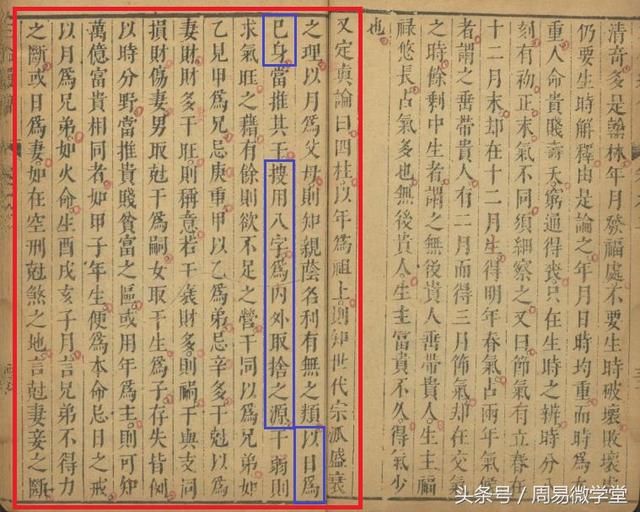 清奇多是翰林年月發福處不若生時破壞敗壞
仍要生時解釋由是論之年月日時均重而時為
重人命貴賤壽夭窮通得喪只在生時之辨時分
刻有初正末氣不同須細察之又曰節氣有立春在
十二月末却在十二月生得明年春氣占兩年氣候
者謂之垂帶貴人有二月而得三月節氣在交氣
之時餘剩中生者謂之無後貴人垂帶貴人生主福
祿悠長占氣多也無後貴人生主富貴不久得氣少
也
又定真論曰四柱以年為祖上則知世代宗派盛衰
之理以月為父母則知親蔭名利有無之類以日為
巳身當推其干搜用八字為內外取捨之源干弱則
求氣旺之藉有餘則欲不足之營干同以為兄弟如
乙見甲為兄忌庚重甲以乙為弟忌辛多干尅以為
妻財財多干旺則稱意若干衰財多則禍干與支同
損財傷妻男取尅干為嗣女取干生為子存失皆例
以時分野當推貴賤貧富之區或用年為主則可知
萬億富貴相同者如甲子年生便為本命忌日之戒
以月為兄弟如火命生酉戌亥子月言兄弟不得力
之斷或日為妻如在空刑尅煞之地言尅妻妾之斷
头条号 / 周易微学堂